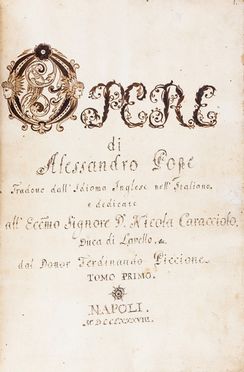 OPERE
di
Alessandro Pope
Tradotte dall'Idioma Inglese nell'Italiano,
e dedicate
all' Eccmo Signore D. Nicola Caracciolo,
Duca di Lavello. &.
dal Dottor Ferdinando Piccione.
TOMO PRIMO.
NAPOLI.